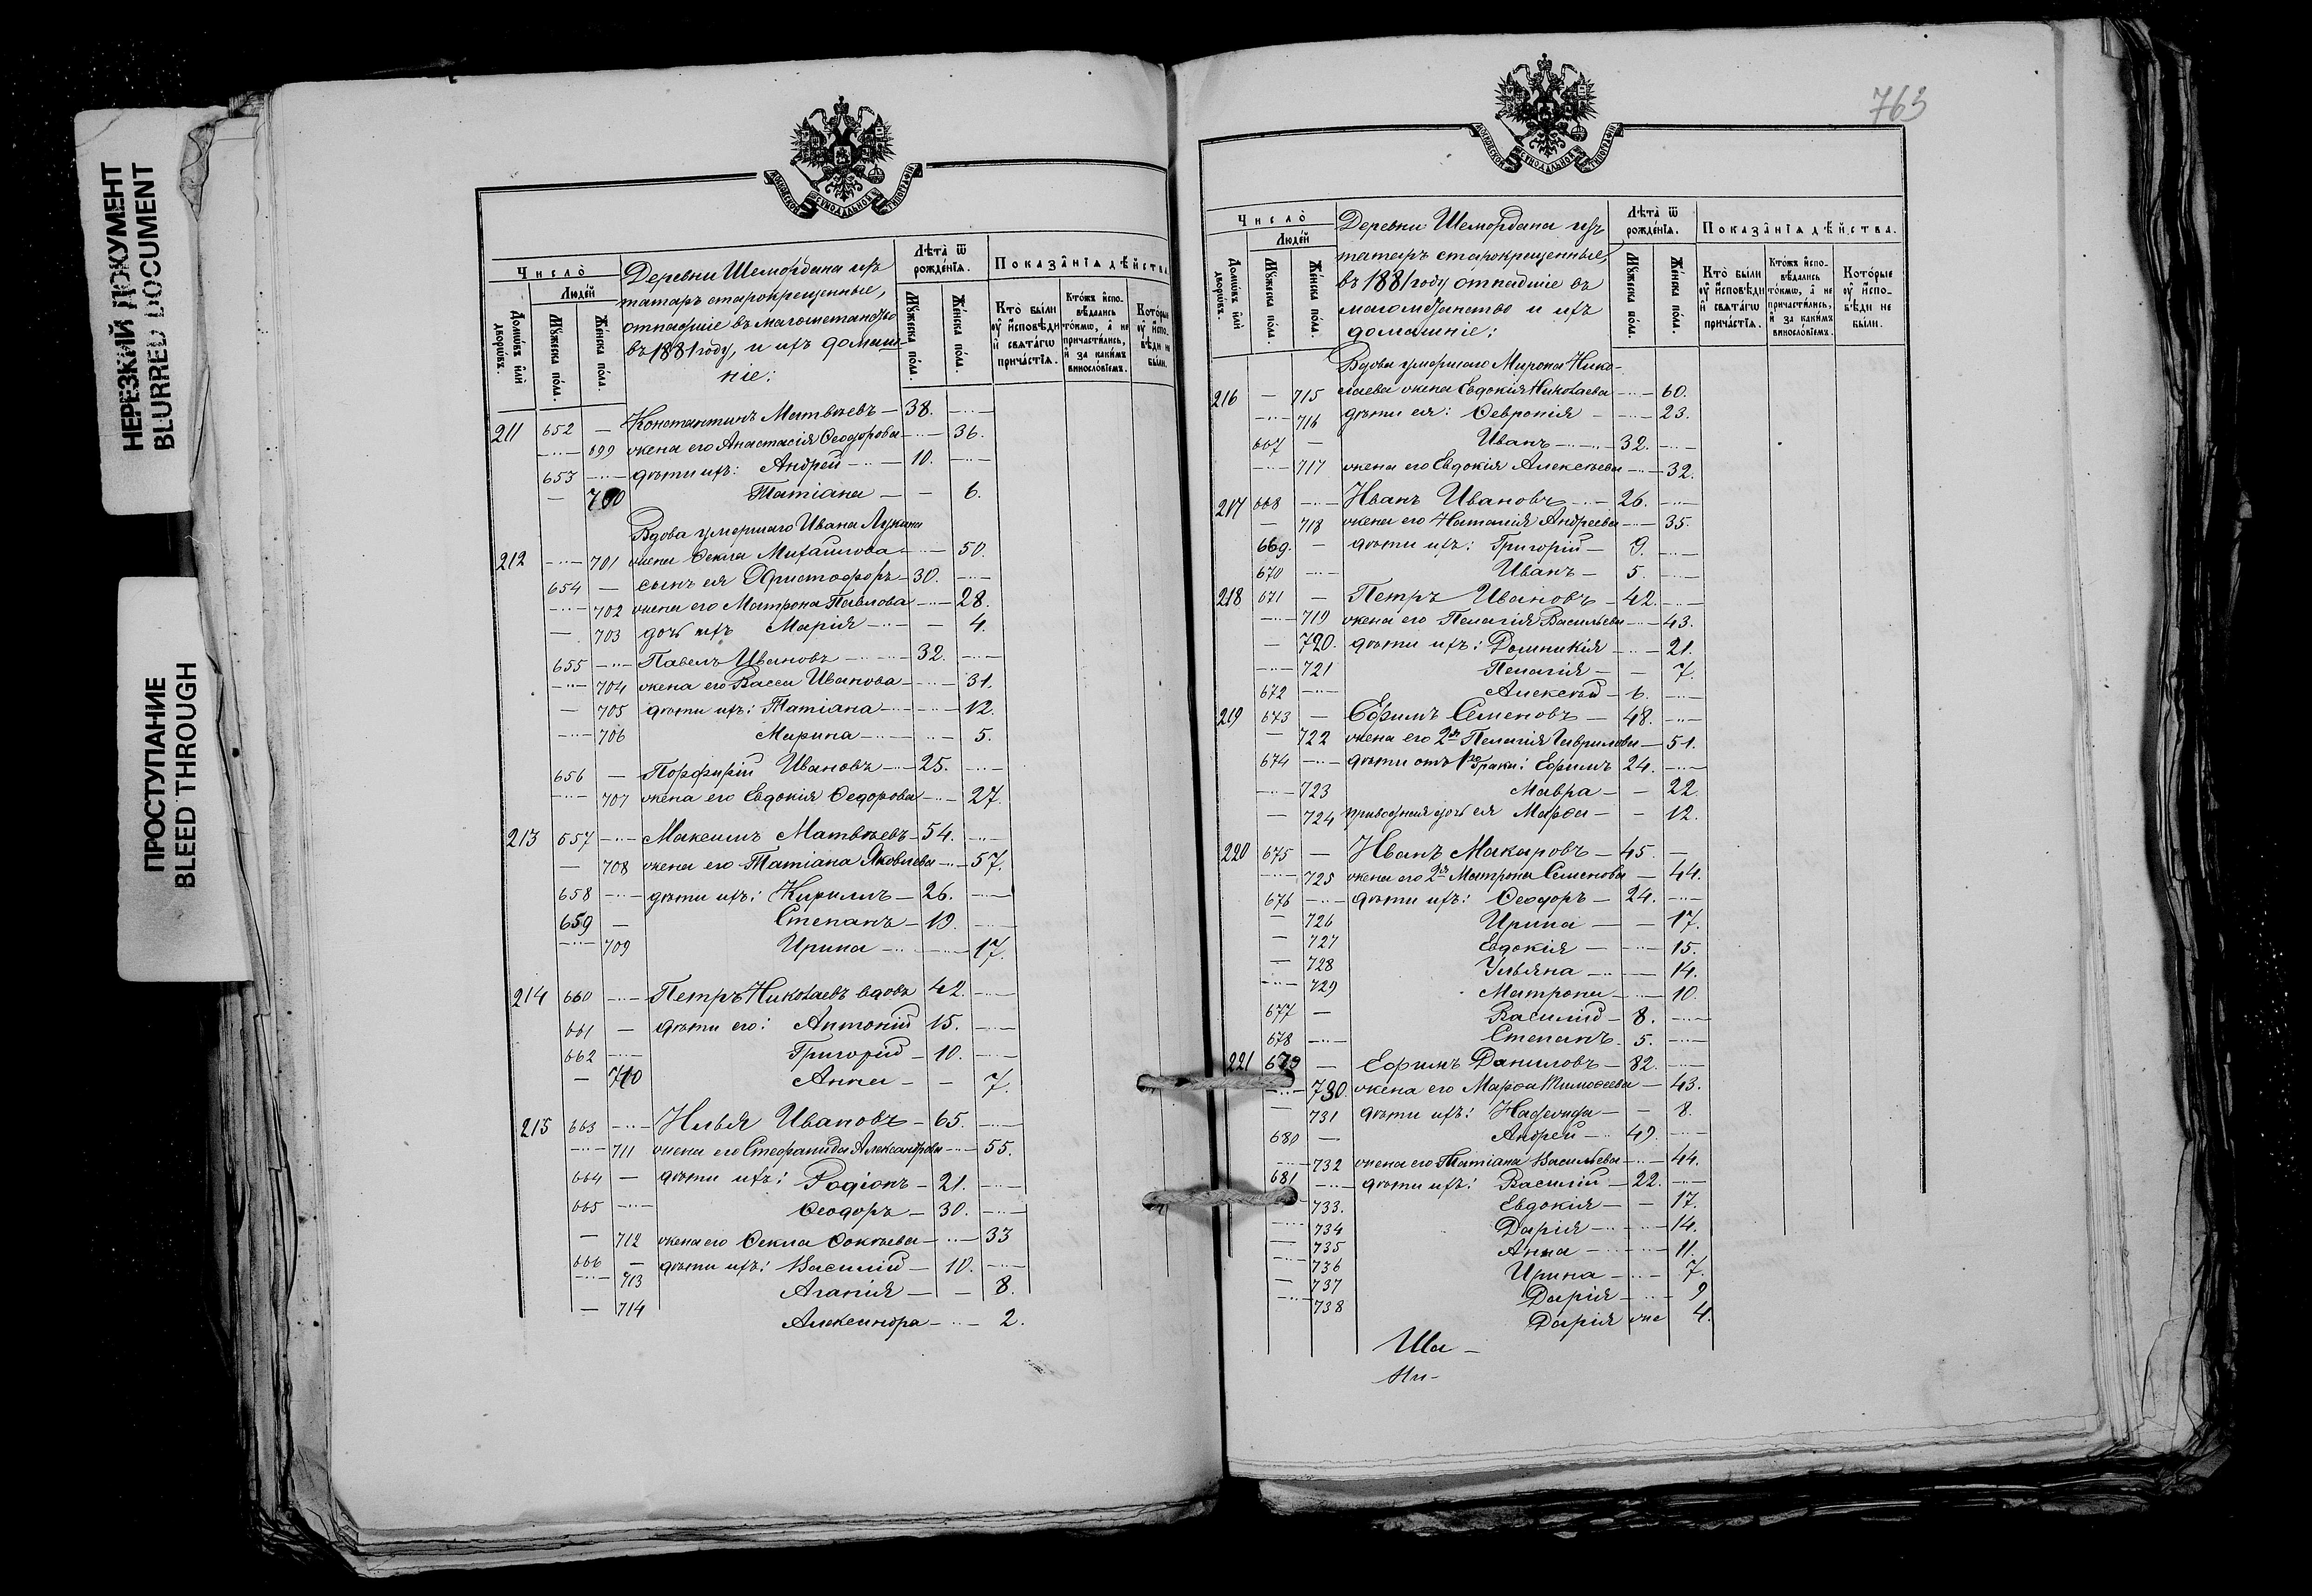 НЕРЕЗКИЙ ДОКУМЕНТ
BLURRED DOCUMENT
ПРОСТУПАНИЕ
BLEED THROUGH
МОСКОВСКОЙ СѴНОДАЛЬНОЙ ТИПОГРАФІИ
Число̀
Люде́й
Домо́въ и҆лѝ дворо́въ.
Мꙋ́жеска по́ла.
Же́нска по́ла.
Деревни Шемордана изъ
татаръ старокрещенные,
отпавшіе въ магометанство
въ 1881 году, и ихъ домаш-
ніе:
Лѣта̀ ѿ рожде́нїѧ.
Мꙋ́жеска по́ла.
Же́нска по́ла.
Показа̑нїѧ дѣ́йства
Кто̀ бы́ли ᲂу҆ и҆сповѣди и҆ свѧта́гѡ прича́стїѧ.
Кто́жъ и҆спо- вѣ́дались то́кмѡ, а҆ не причасти́лись, и҆ за каки́мъ винослѡ́вїемъ.
Кото́рые ᲂу҆ и҆спо- вѣди не бы́ли.
211 652 — Константинъ Матвѣевъ — 38.
699 жена его Анастасія Ѳеодорова — 36.
653 дѣти ихъ: Андрей — 10.
700 Татіана — 6.
Вдова умершаго Ивана Лукина
212 701 жена Ѳекла Михаилова — 50.
654 — сынъ ея Христофоръ — 30.
702 жена его Матрона Павлова — 28.
703 дочь ихъ Марія — 4.
655 Павелъ Ивановъ — 32.
704 жена его Васса Иванова — 31.
705 дѣти ихъ: Татіана — 12.
706 Марина — 5.
656 — Порфирій Ивановъ — 25.
707 жена его Евдокія Ѳедорова — 27.
213 657 Максимъ Матвѣевъ — 54.
708 жена его Татіана Яковлева — 57.
658 дѣти ихъ: Кириллъ — 26.
659 — Степанъ — 19.
709 Ирина — 17.
214 660 Петръ Николаевъ вдовъ 42.
661 — дѣти его: Антоній 15.
662 Григорій — 10.
710 Анна — 7.
215 663 Илья Ивановъ — 65.
711 жена его Стефанида Александрова — 55.
664 — дѣти ихъ: Родіонъ — 21.
665 Ѳеодоръ — 30.
712 жена его Ѳекла Фокѣева — 33
666 — дѣти ихъ: Василій — 10.
713 Агапія — 8.
714 Александра — 2.
763
МОСКОВСКОЙ СѴНОДАЛЬНОЙ ТИПОГРАФІИ
Число̀
Люде́й
Домо́въ и҆лѝ дворо́въ.
Мꙋ́жеска по́ла.
Же́нска по́ла.
Деревни Шемордана изъ
татаръ старокрещенные,
въ 1881 году отпадшіе въ
магометанство и ихъ
домашніе:
Лѣта̀ ѿ рожде́нїѧ.
Мꙋ́жеска по́ла.
Же́нска по́ла.
Показа̑нїѧ дѣ́йства.
Кто̀ бы́ли ᲂу҆ и҆сповѣди и҆ свѧта́гѡ прича́стїѧ.
Кто́жъ и҆спо- вѣ́дались то́кмѡ, а҆ не причасти́лись, и҆ за каки́мъ винослѡ́вїемъ.
Кото́рые ᲂу҆ и҆спо- вѣди не бы́ли.
Вдова умершаго Мирона Нико-
216 — 715 лаева жена Евдокія Николаева — 60.
716 дѣти ея: Ѳевронія — 23.
667 — Иванъ — 32.
717 жена его Евдокія Алексѣева — 32.
217 668 Иванъ Ивановъ — 26.
718 жена его Наталія Андреева — 35.
669. — дѣти ихъ: Григорій — 9.
670 Иванъ — 5.
218 671 — Петръ Ивановъ — 42.
719 жена его Пелагія Васильева — 43.
720. дѣти ихъ: Домникія — 21.
721 Пелагія — 7.
672 Алексѣй — 6.
219 673 — Ефимъ Семеновъ — 48.
722 жена его 2я Пелагія Гаврилова — 51.
674 дѣти отъ 1го брака: Ефимъ 24.
723 Мавра — 22.
724 приводная дочь ея Марѳа — 12.
220 675 — Иванъ Макаровъ — 45.
725 жена его 2я Матрона Семенова — 44.
676 дѣти ихъ: Ѳеодоръ — 24.
726 Ирина — 17.
727 Евдокія — 15.
728 Ульяна — 14.
729 Матрона — 10.
677 — Василій — 8.
678 Степанъ — 5.
221 679 — Ефимъ Даниловъ — 82.
730. жена его Марѳа Тимоѳеева — 43.
731 дѣти ихъ: Надежда — 8.
680 — Андрей — 49.
732 жена его Татіана Васильева — 44.
681 дѣти ихъ: Василій — 22.
733. Евдокія — 17.
734 Дарія — 14.
735 Анна — 11.
736 Ирина — 7.
737 Дарія — 9
738 Дарія же 4.